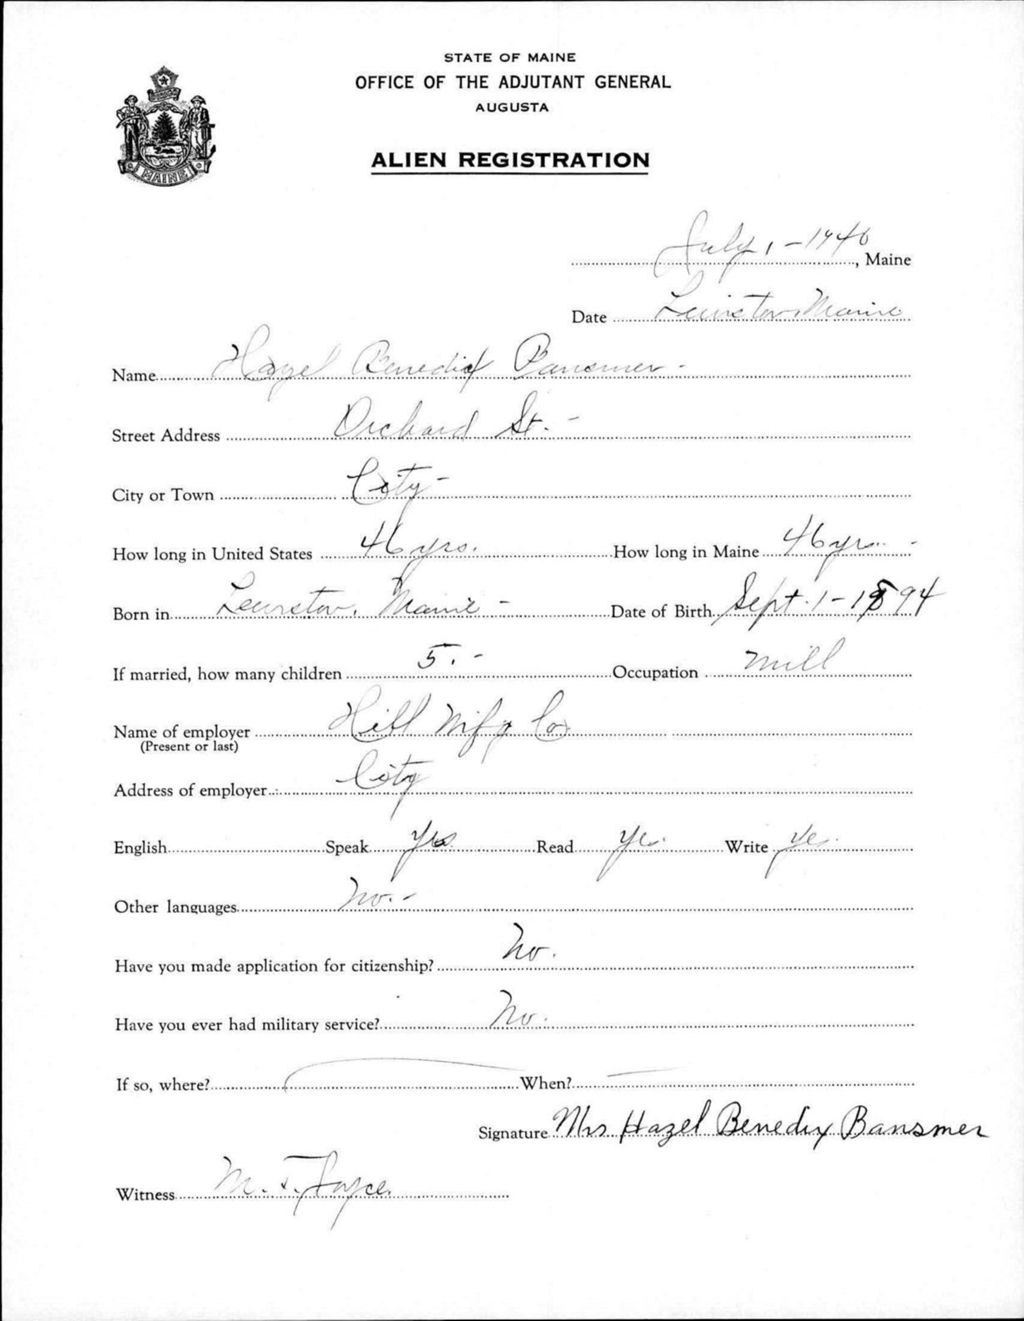 STATE OF MAINE
OFFICE OF THE ADJUTANT GENERAL
AUGUSTA
ALIEN REGISTRATION
MAINE
July 1 - 1940, Maine
Date Lewiston, Maine
Name Hazel Benedix Bansmer -
Street Address Orchard St. -
City or Town City -
How long in United States 46 yrs. How long in Maine 46 yrs. -
Born in Lewiston, Maine - Date of Birth Sept. 1 - 1894
If married, how many children 5. - Occupation Mill
Name of employer Hill Mfg Co
(Present or last)
Address of employer City
English Speak Yes Read Yes. Write Yes.
Other languages No. -
Have you made application for citizenship? No.
Have you ever had military service? No.
If so, where? When?
Signature Mrs Hazel Benedix Bansmer
Witness M. J. Joyce